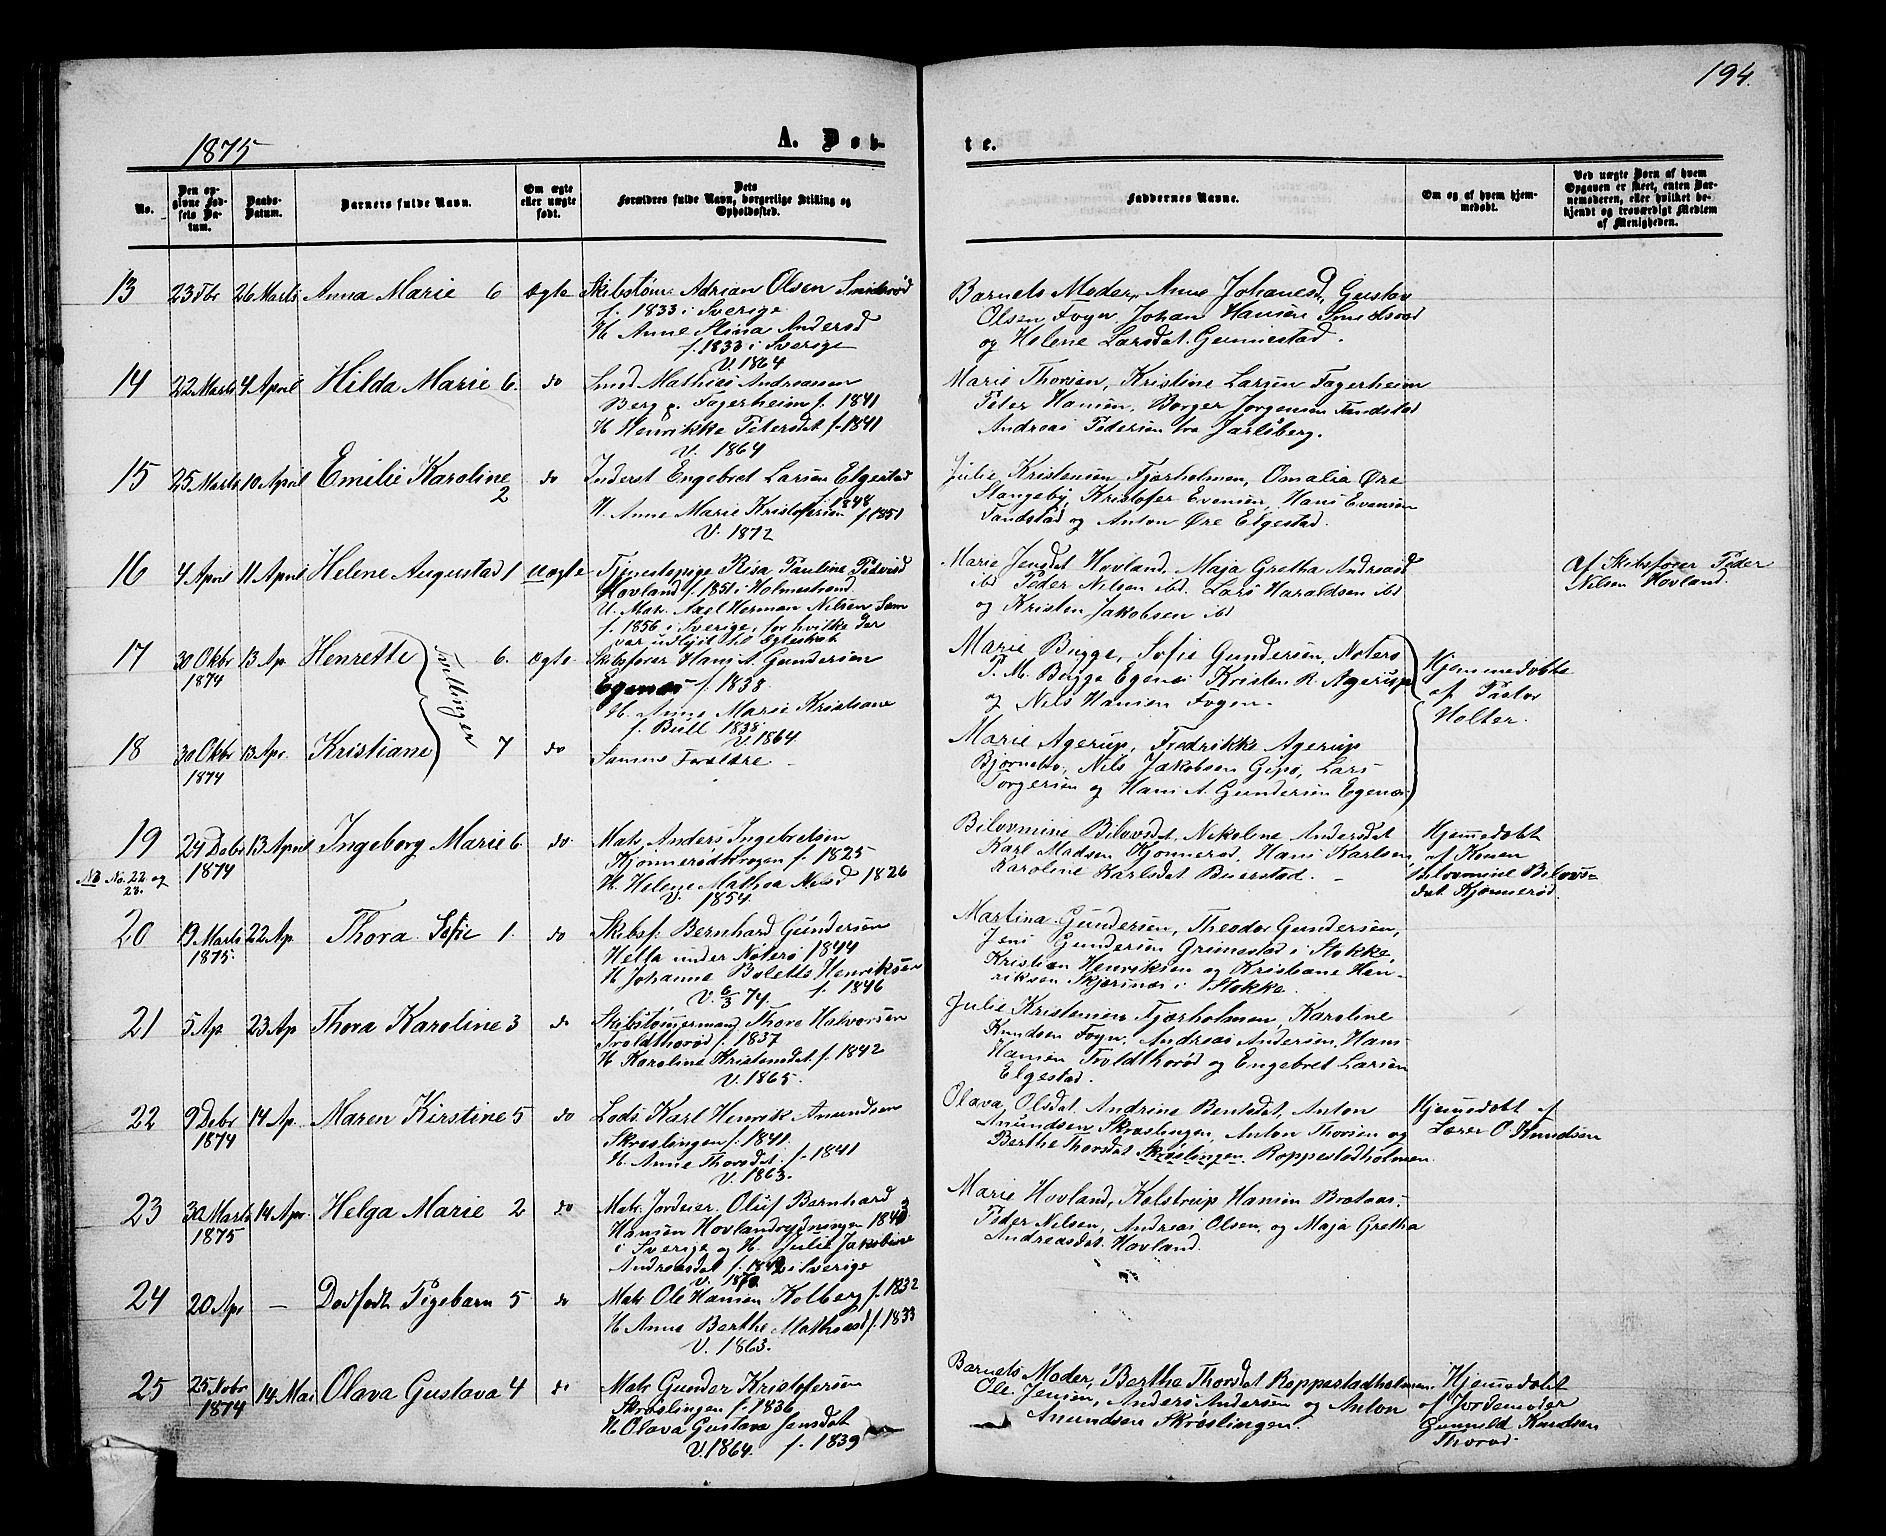 194.
1875
A. Døb-
te.
No.
Den op-
givne Fød-
sels Da-
tum.
Daabs-
Datum.
Barnets fulde Navn.
Om ægte
eller uægte
født.
Dets
Forældres fulde Navn, borgerlige Stilling og
Opholdssted.
Faddernes Navne.
Om og af hvem hjem-
medøbt.
Ved uægte Børn af hvem
Opgaven er skeet, enten Bar-
nemoderen, eller hvilket be-
kjendt og troværdigt Medlem
af Menigheden.
13 23 Fbr 26 Marts Anna Marie 6 ægte Skibstøm. Adrian Olsen Smidsrød
f. 1833 i Sverige
H. Anne Stina Andersd
f. 1833 i Sverige
V. 1864
Barnets Moder, Anne Johanesd, Gustav
Olsen Fogn, Johan Hansen Smidsrød
og Helene Larsdat. Gunnestad.
14 22 Marts 4 April Hilda Marie 6. do Smed Mathias Andreassen
Berg p. Fagerheim f. 1841
H Henrikke Petersdat f. 1841
V. 1864
Marie Thorsen, Kristine Larsen Fagerheim
Peter Hansen, Borger Jørgensen Tandstad
Andreas Pedersen fra Jarlsberg.
15 25 Marts 10 April Emilie Karoline
2 do Inderst Engebret Larsen Elgestad
f. 1848
H. Anne Marie Kristofersen f. 1851
V. 1872
Julie Kristensen, Fjærholmen, Omalia Øre
Stangeby, Kristofer Evensen, Hans Evensen
Tandstad og Anton Øre Elgestad.
16 4 April 11 April Helene Augusta 1 uægte Tjenestepige Risa Pauline Pedersd
Hovland f. 1851 i Holmestrand.
U. Matr. Axel Herman Nilsen Sem
f. 1856 i Sverige, for hvilke der
var udlyst til Ægteskab
Marie Jensdat Hovland, Maja Gretha Andreasd
ibd Peder Nilsen ibd. Lars Haraldsen ibd
og Kristen Jakobsen ibd
af Skibsfører Peder
Nilsen Hovland.
17 30 Oktbr
1874 13 Ap. Henrette 6. ægte Skibsfører Hans A. Gundersen
Egenæs f. 1838.
H. Anne Marie Kristiane
f. Bull 1838.
V. 1864
Tvillinger
Marie Bugge, Sofie Gundersen, Nøterø
P. M. Bugge Egenæs Kristen R. Agerup
og Nils Hansen Fogen.
Hjemmedøbte
af Pastor
Holter.
18 30 Oktbr
1874 13 Apr. Kristiane 7 do Samme Forældre
Marie Agerup, Fredrikke Agerup
Bjørnebo, Nils Jakobsen Gipø, Lars
Torgersen og Hans A. Gundersen Egenæs.
19 24 Debr
1874 13 April Ingeborg Marie 6 do. Matr. Anders Ingebretsen
Kjønnerødkrogen f. 1825
H. Helene Mathea Nilsd 1826
V. 1854.
NB No. 22 og
23.
Bilovmine Bilovsdat, Nikoline Andersdat
Karl Madsen Kjønnerød, Hans Karlsen,
Karoline Karlsdat Buerstad.
Hjemedøbt
af Konen
Bilovmine Bilovs-
dat Kjønnerød.
20 19 Marts
1875. 22 Ap Thora Sofie 1. do Skibsf. Bernhard Gundersen
Hella under Nøterø 1844
H Johanne Bolette Henriksen
V. 6/3 74. f. 1846
Martina Gundersen, Theodor Gundersen,
Jens Gundersen Grimestad i Stokke,
Kristian Henriksen og Kristiane Hen-
riksen Skjærsnæs i Stokke.
21 5 Ap 23 Ap Thora Karoline 3 do Skibstømermand Thore Halvorsen
Troldthorød f. 1837
H Karoline Kristensdat f. 1842
V. 1865.
Julie Kristensen Fjærholmen, Karoline
Knudsen Fogn, Andreas Andersen, Hans
Hansen Troldthorød og Engebret Larsen
Elgestad.
22 9 Debr
1874 14 Ap. Maren Kirstine 5 do Lods Karl Henrik Amundsen
Skrøslingen f. 1841.
H. Anne Thorsdat f. 1841
V. 1863.
Olava Olsdat, Andrine Bentsdat, Anton
Anundsen Skrøslingen, Anton Thorsen og
Berthe Thorsdat Skrøslingen. Roppestadholmen
Hjemedøbt af
Lærer O. Knudsen
23 30 Marts
1875 14 Apr. Helga Marie 2 do Matr. Jordeier Oluf Bernhard
Hansen Hovlandrydningen 1843
i Sverige og H. Julie Jakobine
Andreasdat f. 1842 i Sverige
V. 1870.
Marie Hovland, Kolstrup Hansen Brataas
Peder Nilsen, Andreas Olsen og Maja Gretha
Andreasdat. Hovland.
24 20 Apr — Dødfødt Pigebarn 5 do Matr Ole Hansen Kolberg f. 1832
H Anne Berthe Mathiasd f. 1833
V. 1863.
25 25 Novbr
1874 14 Mai Olava Gustava 4 do Matr Gunder Kristofersen
Skrøslingen f. 1836
H Olava Gustava Jensdat
V. 1864. f. 1839
Barnets Moder, Berthe Thorsdat Roppestadholmen
Ole Jensen, Anders Andersen og Anton
Anundsen Skrøslingen.
Hjemedøbt
af Jordemoder
Gunnild Knudsen
Thorød.